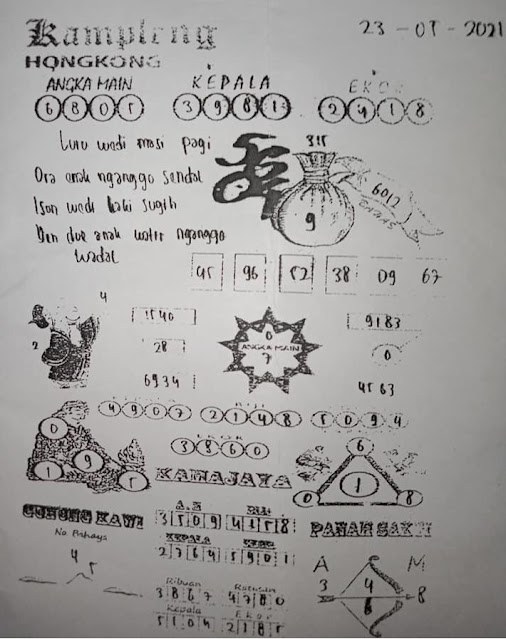 Kampleng
23 - 07 - 2021
HONGKONG
ANGKA MAIN
KEPALA
EKOR
6 8 0 5
3 9 8 1
2 4 1 8
Luru wadi masi pagi
315
Ora anak nganggo sendal
6012
Ison wedi laki sugih
9
Den due anak water nganggo
wadal
45 96 52 38 09 67
4
1540
0
9183
2
28
ANGKA MAIN
0
7
6934
4563
4 9 0 7
2 1 4 8
5 0 9 4
3 8 6 0
0
6
9
1
1
5
KAMAJAYA
0
8
GUNUNG KAWI
A.M
3 5 0 9
4 1 5 8
PANAH SAKTI
No Bahaya
KEPALA
EKOR
4 5
2 7 6 4
5 9 0 1
A
M
3
4
8
6
Ribuan
Ratusan
3 8 6 7
4 7 8 0
Kepala
Ekor
5 1 0 4
2 1 8 5